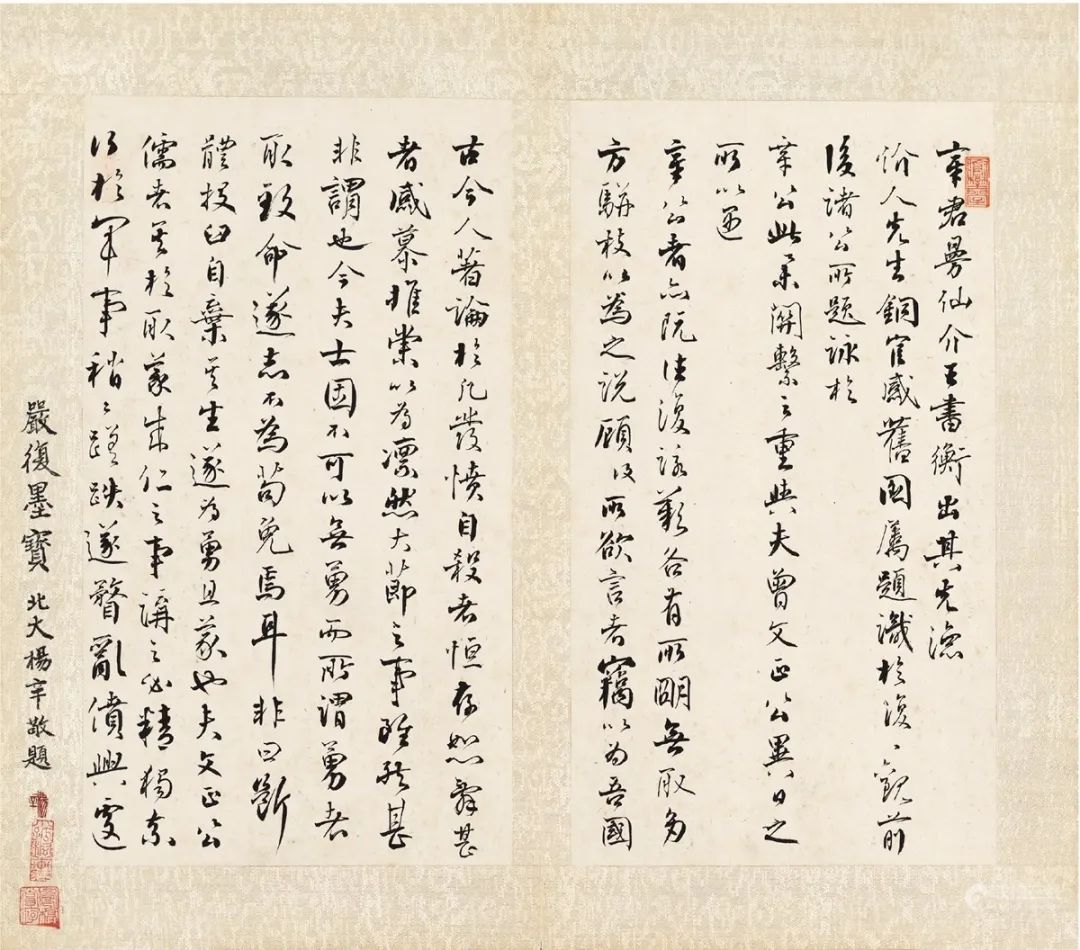 章君曼仙介王書衡出其先德
价人先生銅官感舊圖屬題識於復〻觀前
後諸公所題詠於
章公此舉關繫之重與夫曾文正公異日之
所以遇
章公者亦既往復詠歎各有所闡無取多
方駢枝以為之說顧復所欲言者竊以為吾國
古今人著論於凡發憤自殺者恒存恕辭甚
者感慕推崇以為凛然大節之事雖然甚
非謂也今夫士固不可以無勇而所謂勇者
取致命遂志不為苟免焉耳非曰斷
體投臼自棄其生遂為勇且義也夫文正公
儒者其於取義成仁之事講之必精獨奈
何於軍事稍〻蹉跌遂瞀亂僨興遽
嚴復墨寶 北大楊辛敬題